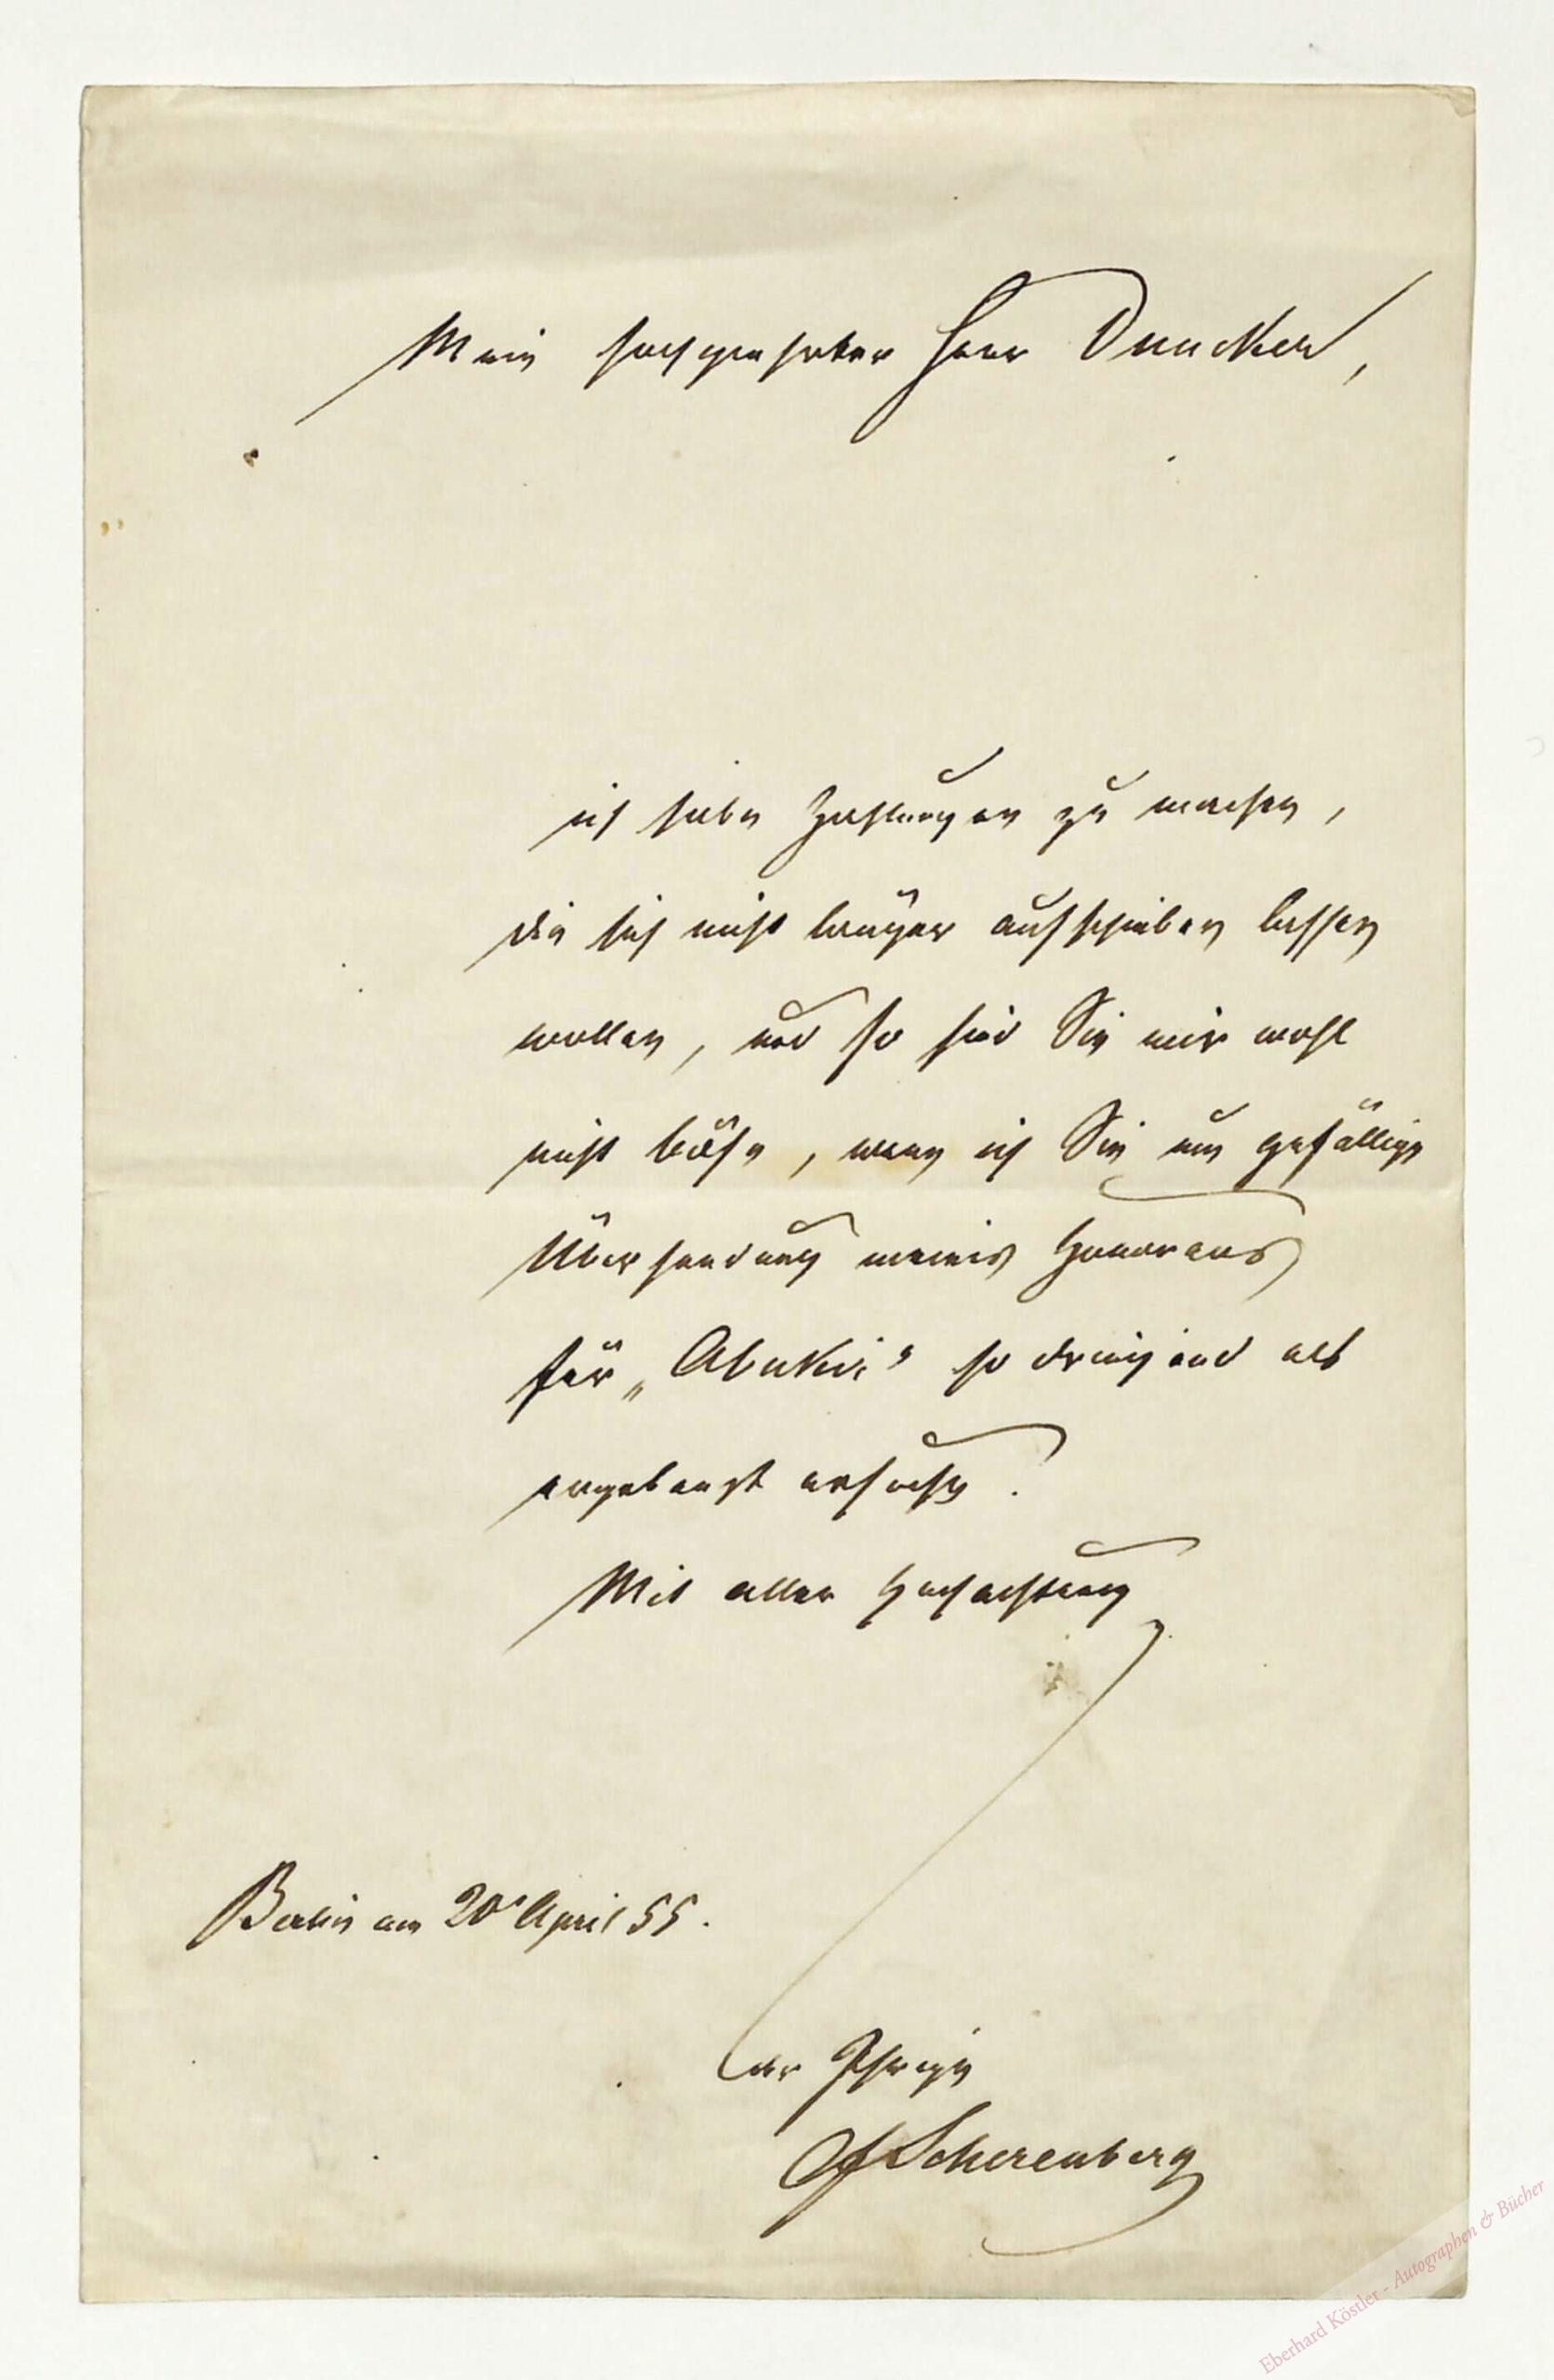 Mein hochgeehrter Herr Duncker,
ich habe Zahlungen zu machen,
die sich nicht länger aufschieben lassen
wollen, und so sind Sie mir wohl
nicht böse, wenn ich Sie um gefällige
Übersendung meines Honorars
für „Abukir" so dringend als
ergebenst ersuche.
Mit aller Hochachtung
Berlin am 20. April 55.
der Ihrige
CfScherenberg
Eberhard Köstler - Autographen & Bücher